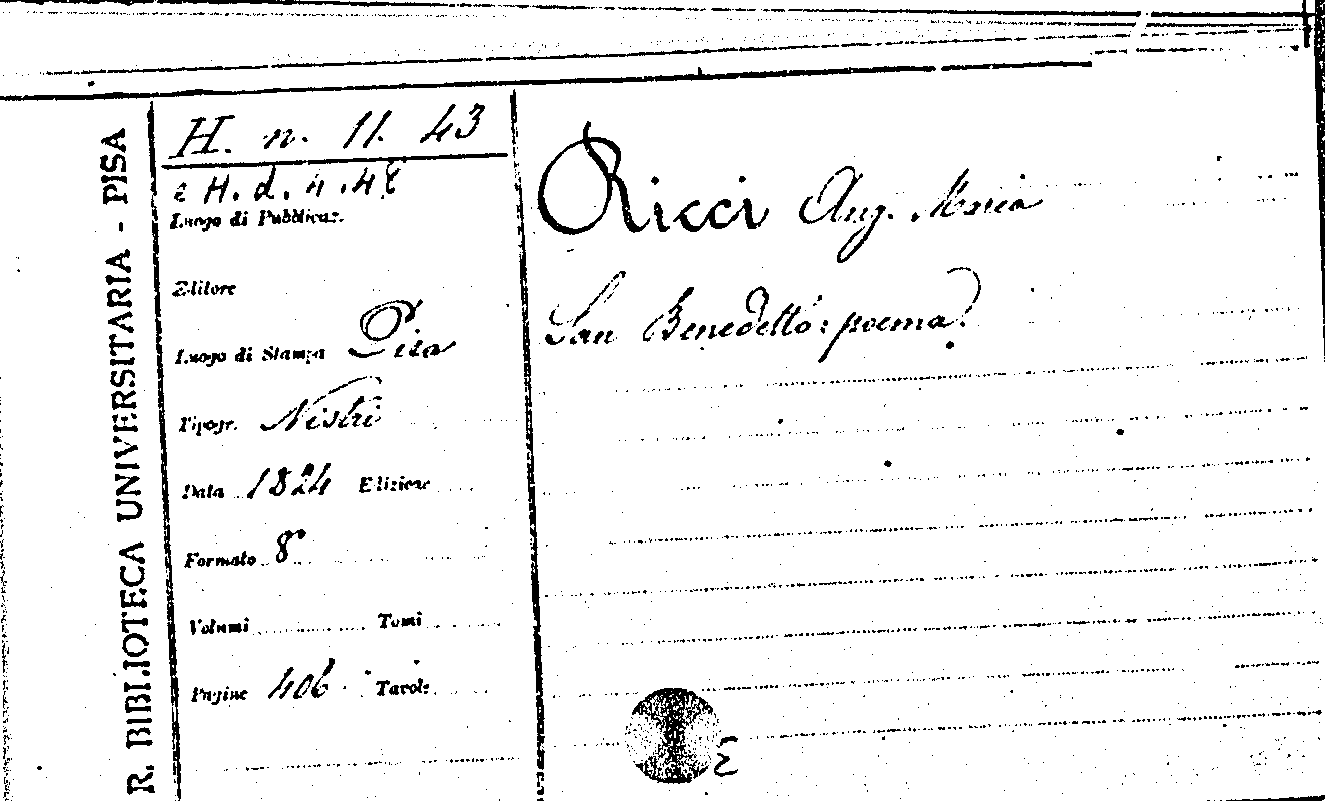 R. BIBLIOTECA UNIVERSITARIA - PISA
H. n. 11. 43
e H. d. 4. 48
Luogo di Pubblicaz.
Editore
Luogo di Stampa Pisa
Tipogr. Nistri
Data 1824 Edizione
Formato 8º
Volumi Tomi
Pagine 406 Tavole
Ricci Ang. Maria
San Benedetto: poema.